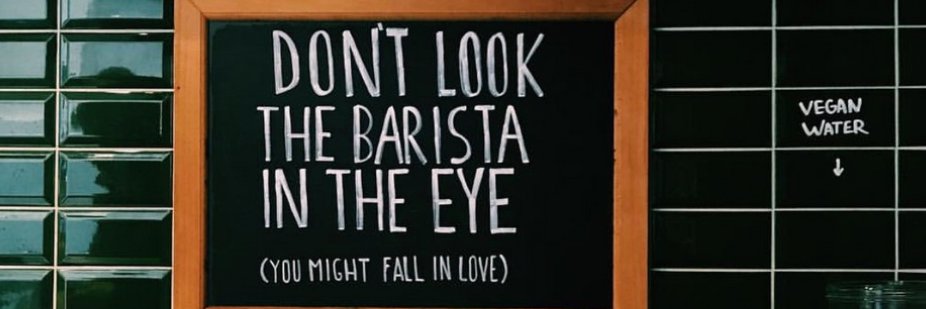 DON'T LOOK
THE BARISTA
IN THE EYE
(YOU MIGHT FALL IN LOVE)
VEGAN
WATER